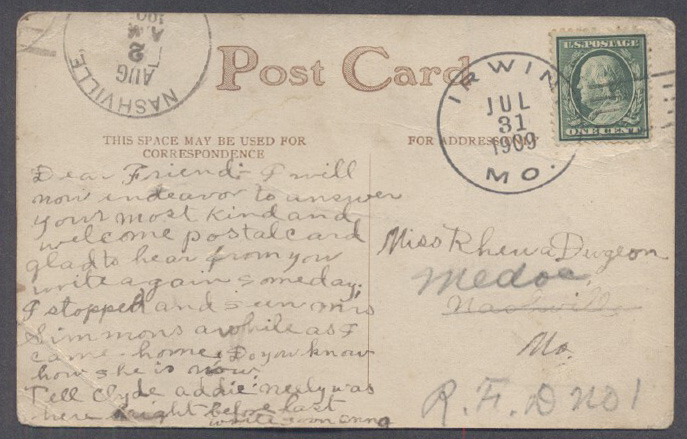 NASHVILLE,
AUG
2
A.M.
190
Post Card
U.S. POSTAGE
ONE CENT
IRWIN
JUL
31
1909
MO.
THIS SPACE MAY BE USED FOR
CORRESPONDENCE
FOR ADDRESS ONLY
Dear Friend:- I will
now indeavor to answer
your most kind and
welcome postalcard
glad to hear from you
write again someday;
I stopped and seen mrs
Simmons awhile as I
came home. Do you know
how she is now.
Tell Clyde addie neely was
here night before last
write soon anna
Miss Rhewa Dugeon
Medoc,
Nashville
Mo.
R. F. D no 1